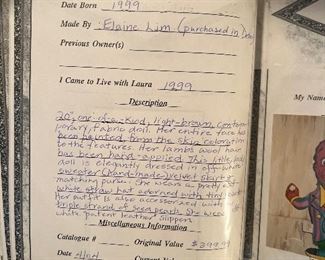 Date Born 1999
Made By Elaine Lim (purchased in
Previous Owner(s)
I Came to Live with Laura 1999
Description
20", one-of-a-kind, light-brown, contem-
porary, fabric doll. Her entire face has
been painted from the skin coloration
to the features. Her lambs wool hair
has been hand applied. This little
doll is elegantly dressed in off white
sweater (hand-made) velvet skirt &
matching purse. She wears a pretty
white straw hat adorned with tiny
Her outfit is also accessorized with
triple strand of seed pearls. She wears
white patent leather slippers
Miscellaneous Information
Catalogue # Original Value $399.99
Date
My Name